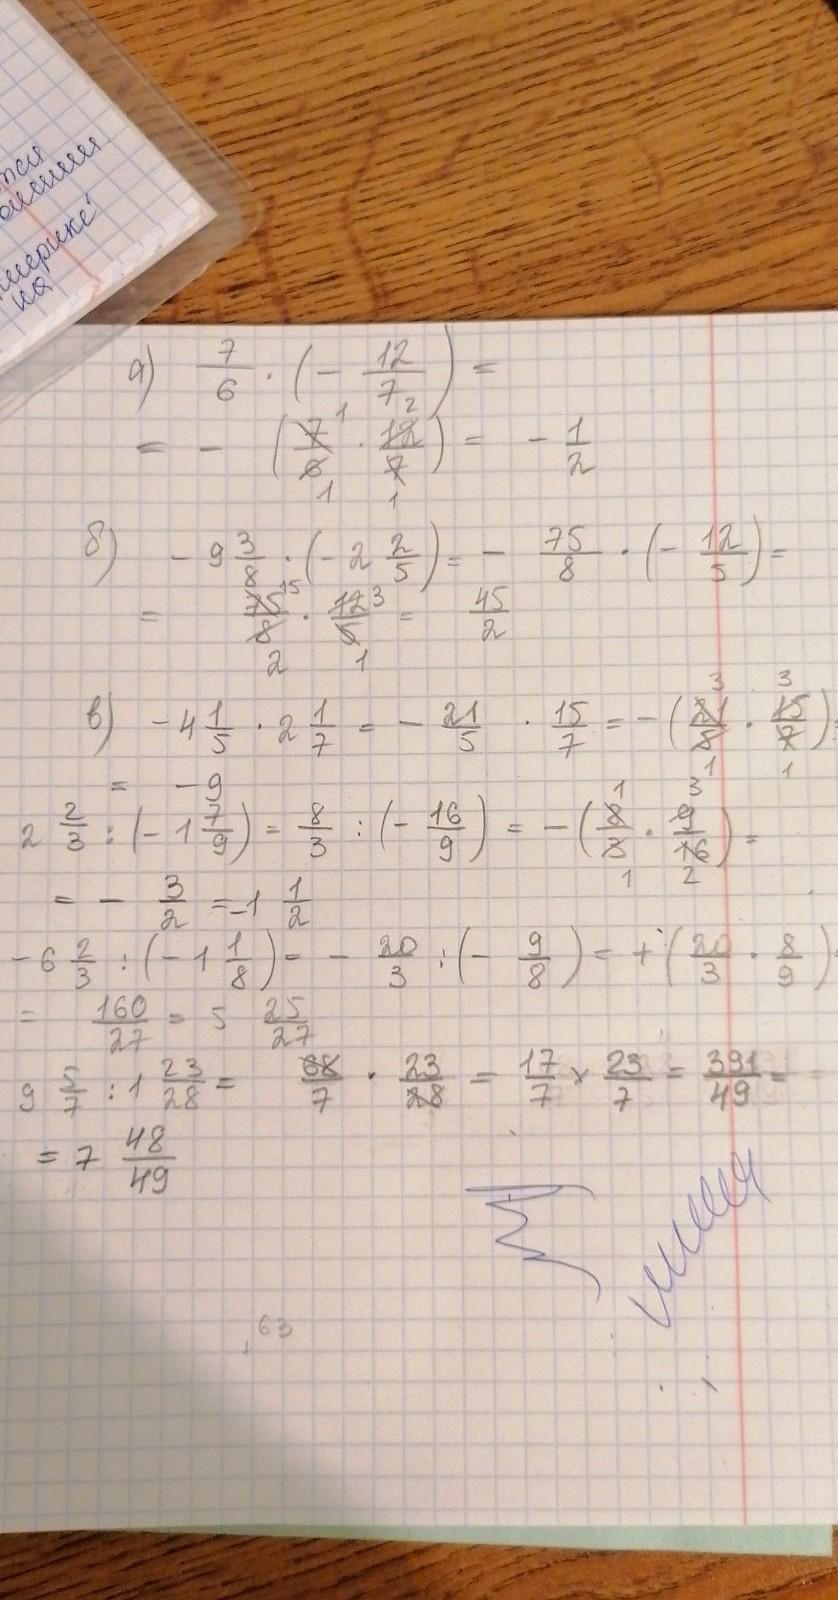 тся
мерике
на
а) 7/6 · (- 12/7) =
= - (7/6 · 12/7) = - 1/2
1 2 1 1
б) - 9 3/8 · (- 2 2/5) = - 75/8 · (- 12/5) =
= 75/8 · 12/5 = 45/2
15 3 2 1
в) - 4 1/5 · 2 1/7 = - 21/5 · 15/7 = - (21/5 · 15/7) =
3 3 1 1
= - 9
2 2/3 : (- 1 7/9) = 8/3 : (- 16/9) = - (8/3 · 9/16) =
1 3 1 2
= - 3/2 = -1 1/2
- 6 2/3 : (- 1 1/8) = - 20/3 : (- 9/8) = + (20/3 · 8/9) =
= 160/27 = 5 25/27
9 5/7 : 1 23/28 = 68/7 · 23/28 = 17/7 × 23/7 = 391/49 =
= 7 48/49
63